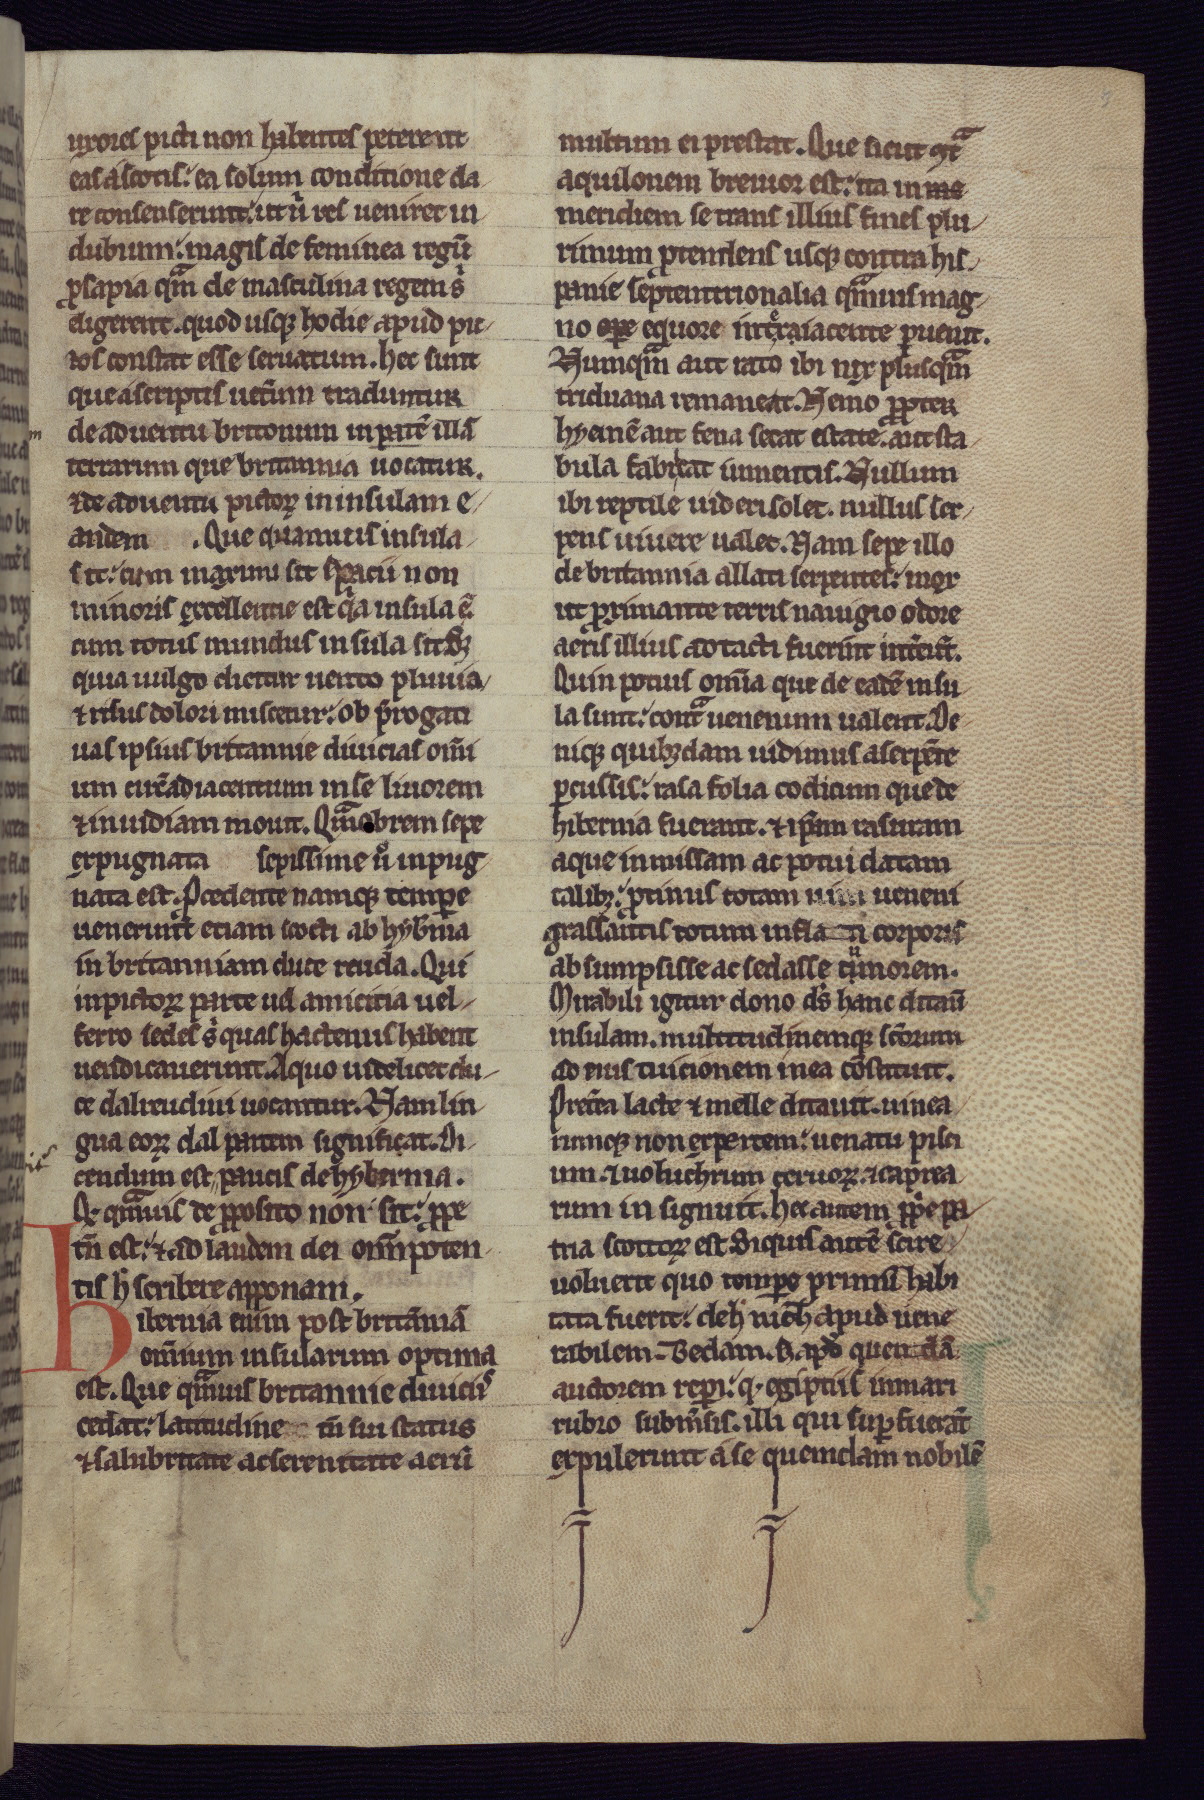 uxores picti non habentes peterent
eas ascotis: ea solum conditione da
re consenserunt: ut ũ res ueniret in
dubium: magis de feminea regũ
ꝓsapia qᵃm de masculina regem s̓
eligerent. quod usqꝫ hodie apud pic
tos constat esse seruatum. hec sunt
que ascriptis uetũm traduntur
de aduentu britonum in partẽ illã
terrarum que britannia uocatur.
& de aduentu pictoꝝ in insulam e
andem . Que quamuis insula
sit: cum maximi sit spacii non
minoris excellentie est qⁱa insula ẽ
cum totus mundus insula sit. Sꝫ
quia uulgo dicitur uento pluuia
& risus dolori miscetur: ob p̃rogati
uas ipsius britannie diuicias om̃i
um circ̃adiacentium in se liuorem
& inuidiam mouit. Qᵃmobrem sepe
expugnata sepissime ũ inpug
nata est. P̃cedente namqꝫ tempe
uenerunt etiam scocti ab hybnia
in britanniam duce reuda. Qui
inpictoꝝ parte uel amicitia uel
ferro sedes s̓ quas hactenus habent
uendicauerunt. A quo uidelicet du
ce dalreudini uocantur. Nam lin
gua eoꝝ dal partem significat. Di
cendum est paucis de hybernia.
Qꝫ qᵃmuis de ꝓposito non sit: ꝓpe
tñ est: & ad laudem dei om̃ipoten
tis h̓ scribere apponam.
hibernia enim post britãniã
om̃ium insularum optima
est. Que qᵃmuis britannie diuiciis
cedat: latitudine tñ sui status
& salubritate ac serenitate aerũ
multum ei prestat. Que sicut 9tᵃ
aquilonem breuior est: ita in me
meridiem se trans illius fines plu
rimum ꝓtendens usqꝫ contra his
panie septentrionalia qᵃmuis mag
no ope equore interaiacente peruenit.
Numqᵃm aut raro ibi nix plusqᵃm
triduana remaneat. Nemo ꝓpter
hyemẽ aut fena secat estate. aut sta
bula fabricat iumentis. Nullum
ibi reptile uideri solet. nullus ser
pens uiuere ualet. Nam sepe illo
de britannia allati serpentes: mox
ut ꝓximante terris nauigio odore
aeris illius adtacti fuerint intereũt.
Quin potius om̃ia que de eadẽ insu
la sunt: contᵃ uenenum ualent. De
niqꝫ quibꝫdam uidimus a serpẽte
ꝑcussis: rasa folia codicum que de
hibernia fuerant. & ip̃am rasuram
aque inmissam ac potui datam
talibꝫ: ꝓtinus totam uim ueneni
grassantis totum inflati corporis
absumpsisse ac sedasse tumorem.
Mirabili igitur dono ds̃ hanc ditauit
insulam. multitudinemqꝫ sc̃orum
ad eius tuicionem in ea cõstituit.
Pretea lacte & melle ditauit. uinea
rumqꝫ non expertem: uenatu pisci
um. & uoluchrum ceruoꝝ. & caprea
rum in signuit. hec autem ꝓpe pa
tria scottoꝝ est. Siquis autẽ scire
uoluerit quo tempe primũ habi
tata fuerit: de h̓ nich̃ apud uene
rabilem. Bedam. S. apd̓ quendã
auctorem repi: qꝫ egiptiis in mari
rubro submsis. illi qui suꝑfuerãt
expulerunt a se quemdam nobilẽ